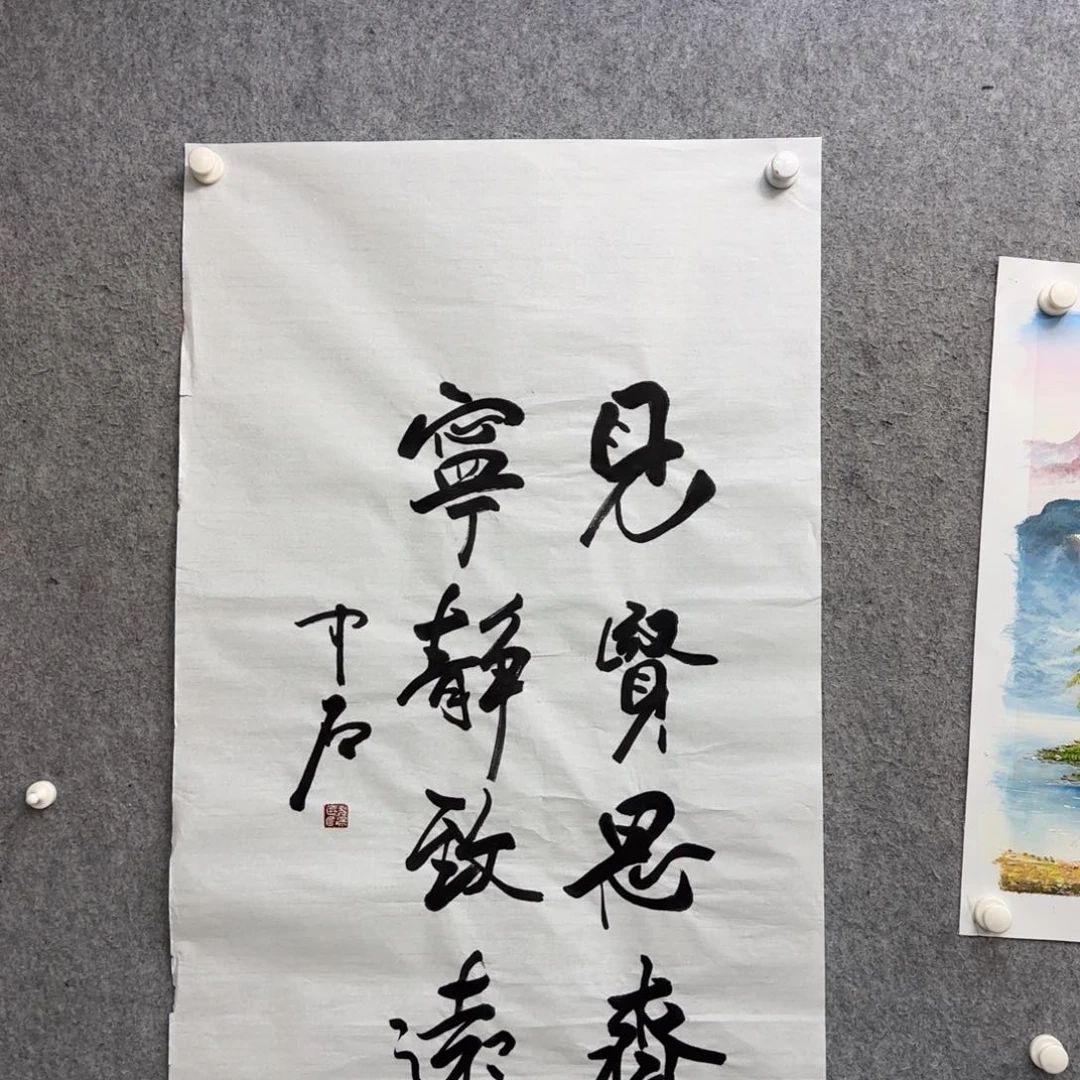 見賢思齊
寧靜致遠
中石